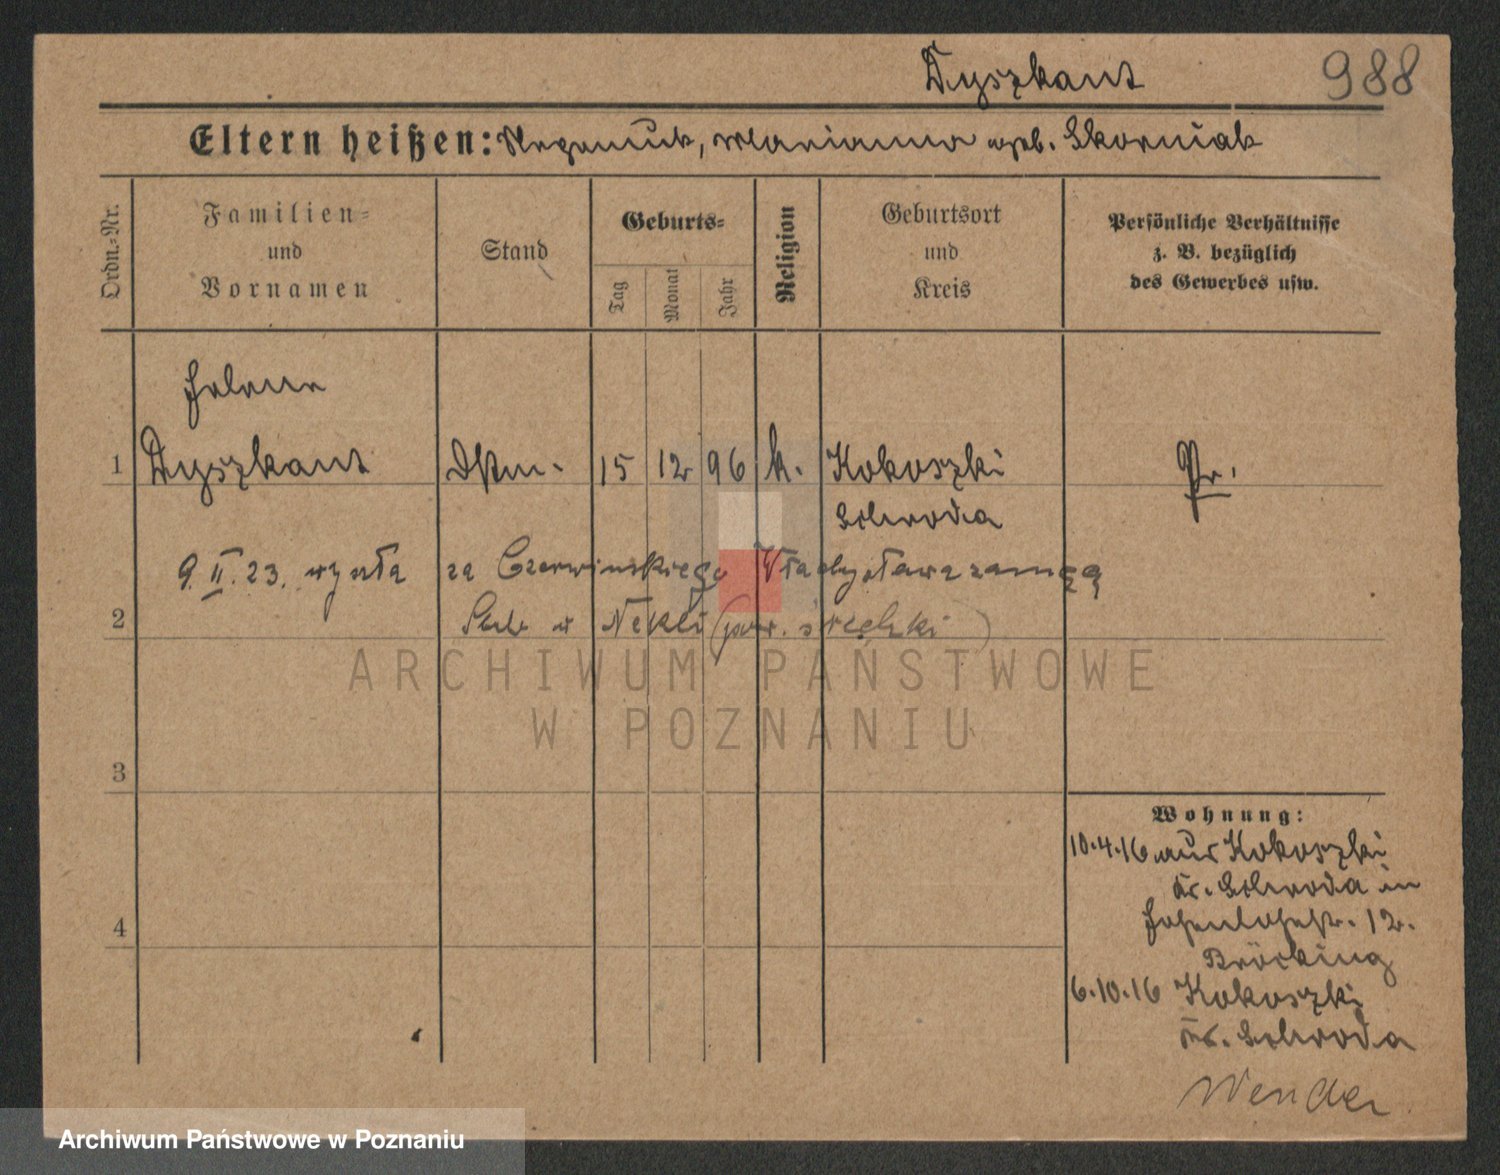 Dyszkant 988
Eltern heißen: Nepomuk, Marianna geb. Skorniak
Ordn.-Nr.
Familien-
und
Vornamen
Stand
Geburts-
Tag
Monat
Jahr
Religion
Geburtsort
und
Kreis
Persönliche Verhältnisse
z. B. bezüglich
des Gewerbes usw.
Helene
1 Dyszkant Dstm. 15 12 96 k. Kokoszki Pr.
Schroda
9. II. 23. wyszła za Czerwinskiego Władysława zamęż
2 Ślub w Nekli (pow. średzki)
3
4
Wohnung:
10.4.16 aus Kokoszki
Kr. Schroda in
Hohenlohestr. 12.
Bröcking
6.10.16 Kokoszki
Kr. Schroda
Wenden
ARCHIWUM PAŃSTWOWE
W POZNANIU
Archiwum Państwowe w Poznaniu